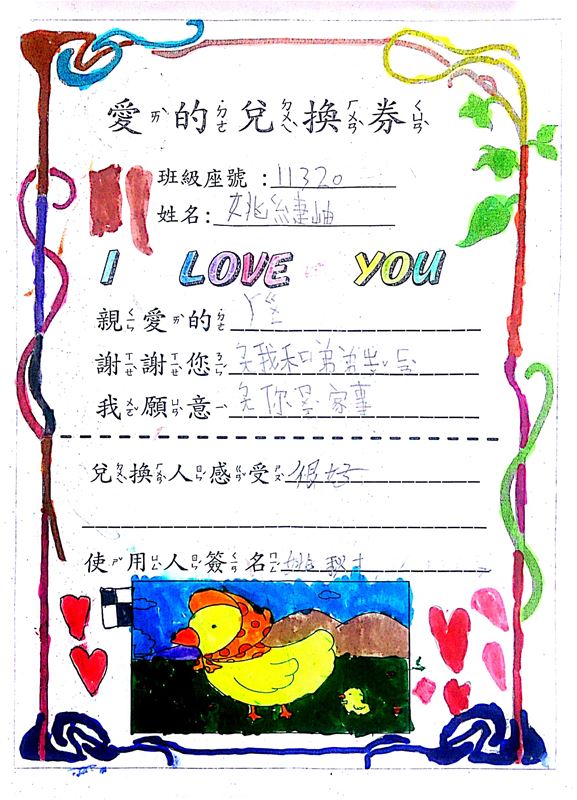 愛ㄞˋ的ㄉㄜ˙兌ㄉㄨㄟˋ換ㄏㄨㄢˋ券ㄑㄩㄢˋ
班級座號：11320
姓名：姚緁岫
I LOVE YOU
親ㄑㄧㄣ愛ㄞˋ的ㄉㄜ˙ㄚㄍㄨㄥ
謝ㄒㄧㄝˋ謝ㄒㄧㄝ˙您ㄋㄧㄣˊ 我和弟弟
我ㄨㄛˇ願ㄩㄢˋ意ㄧˋ 你 家事
兌ㄉㄨㄟˋ換ㄏㄨㄢˋ人ㄖㄣˊ感ㄍㄢˇ受ㄕㄡˋ：很好
使ㄕˇ用ㄩㄥˋ人ㄖㄣˊ簽ㄑㄧㄢ名ㄇㄧㄥˊ：姚